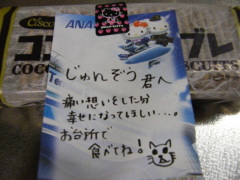 ANA
Cisco
ココ
ブレ
COCO
BISCUITS
じゅんぞう君へ
痛い想いをした分
幸せになってほしい…。
お台所で
食べてね!